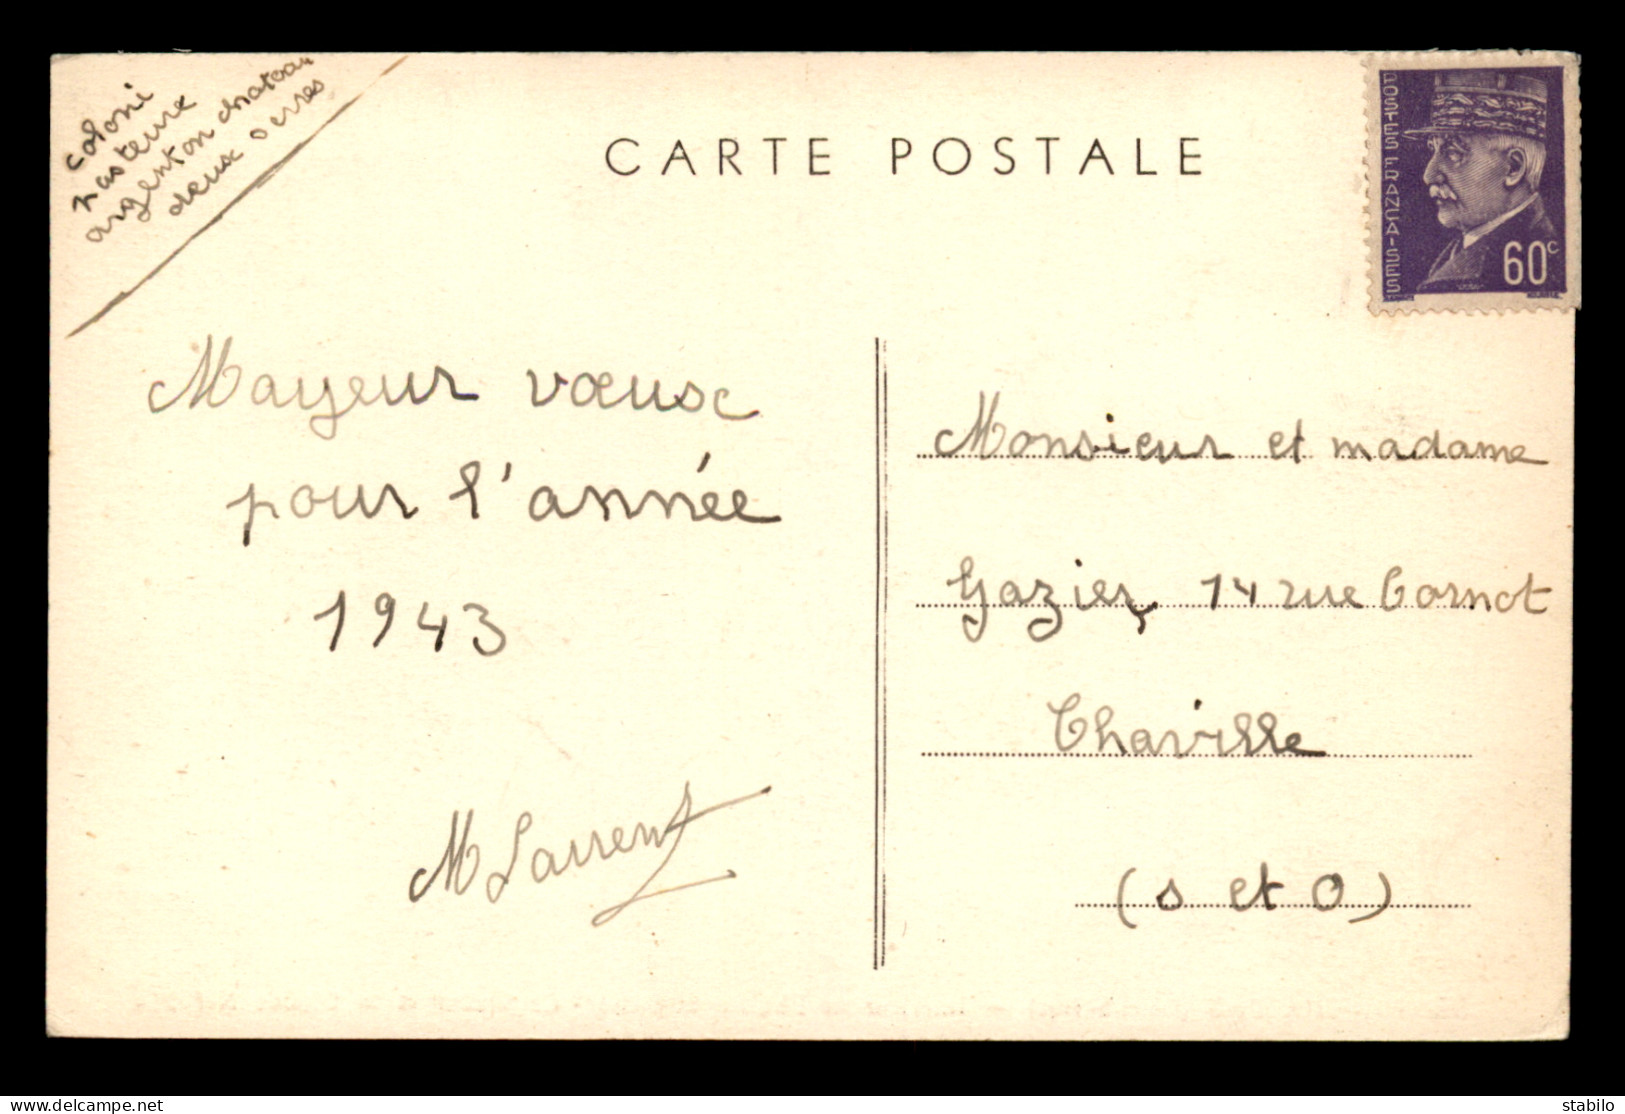 coloni
pasteure
argenton chateau
deux sevres
CARTE POSTALE
POSTES FRANÇAISES
60c
Mayeur vœux
pour l'année
1943
M Laurent
Monsieur et madame
Gazier, 14 rue Carnot
Chaville
(S et O)
https://www.delcampe.net
stabilo